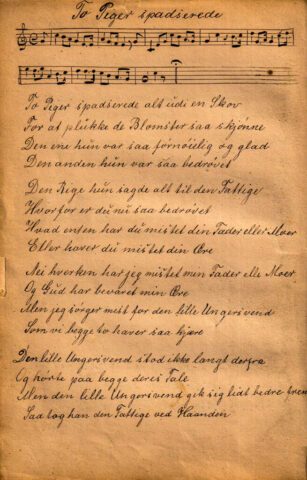 To Peger spadserede
To Peger spadserede alt udi en Skov
For at plukke de Blomster saa skjønne
Den ene hun var saa fornøielig og glad
Den anden hun var saa bedrøvet
Den Rige hun sagde alt til den Fattige
Hvorfor er du nu saa bedrøvet
Hvad enten har du mistet din Fader eller Moer
Eller haver du mistet din Ære
Nei hverken har jeg mistet min Fader elle Moer
Og Gud har bevaret min Ære
Men jeg sørger mest for den lille Ungersvend
Som vi begge to haver saa kjære
Den lille Ungersvend stod ikke langt derfra
Og hørte paa begge deres Tale
Men den lille Ungersvend gik sig lidt bedre frem
Saa tog han den Fattige ved Haanden